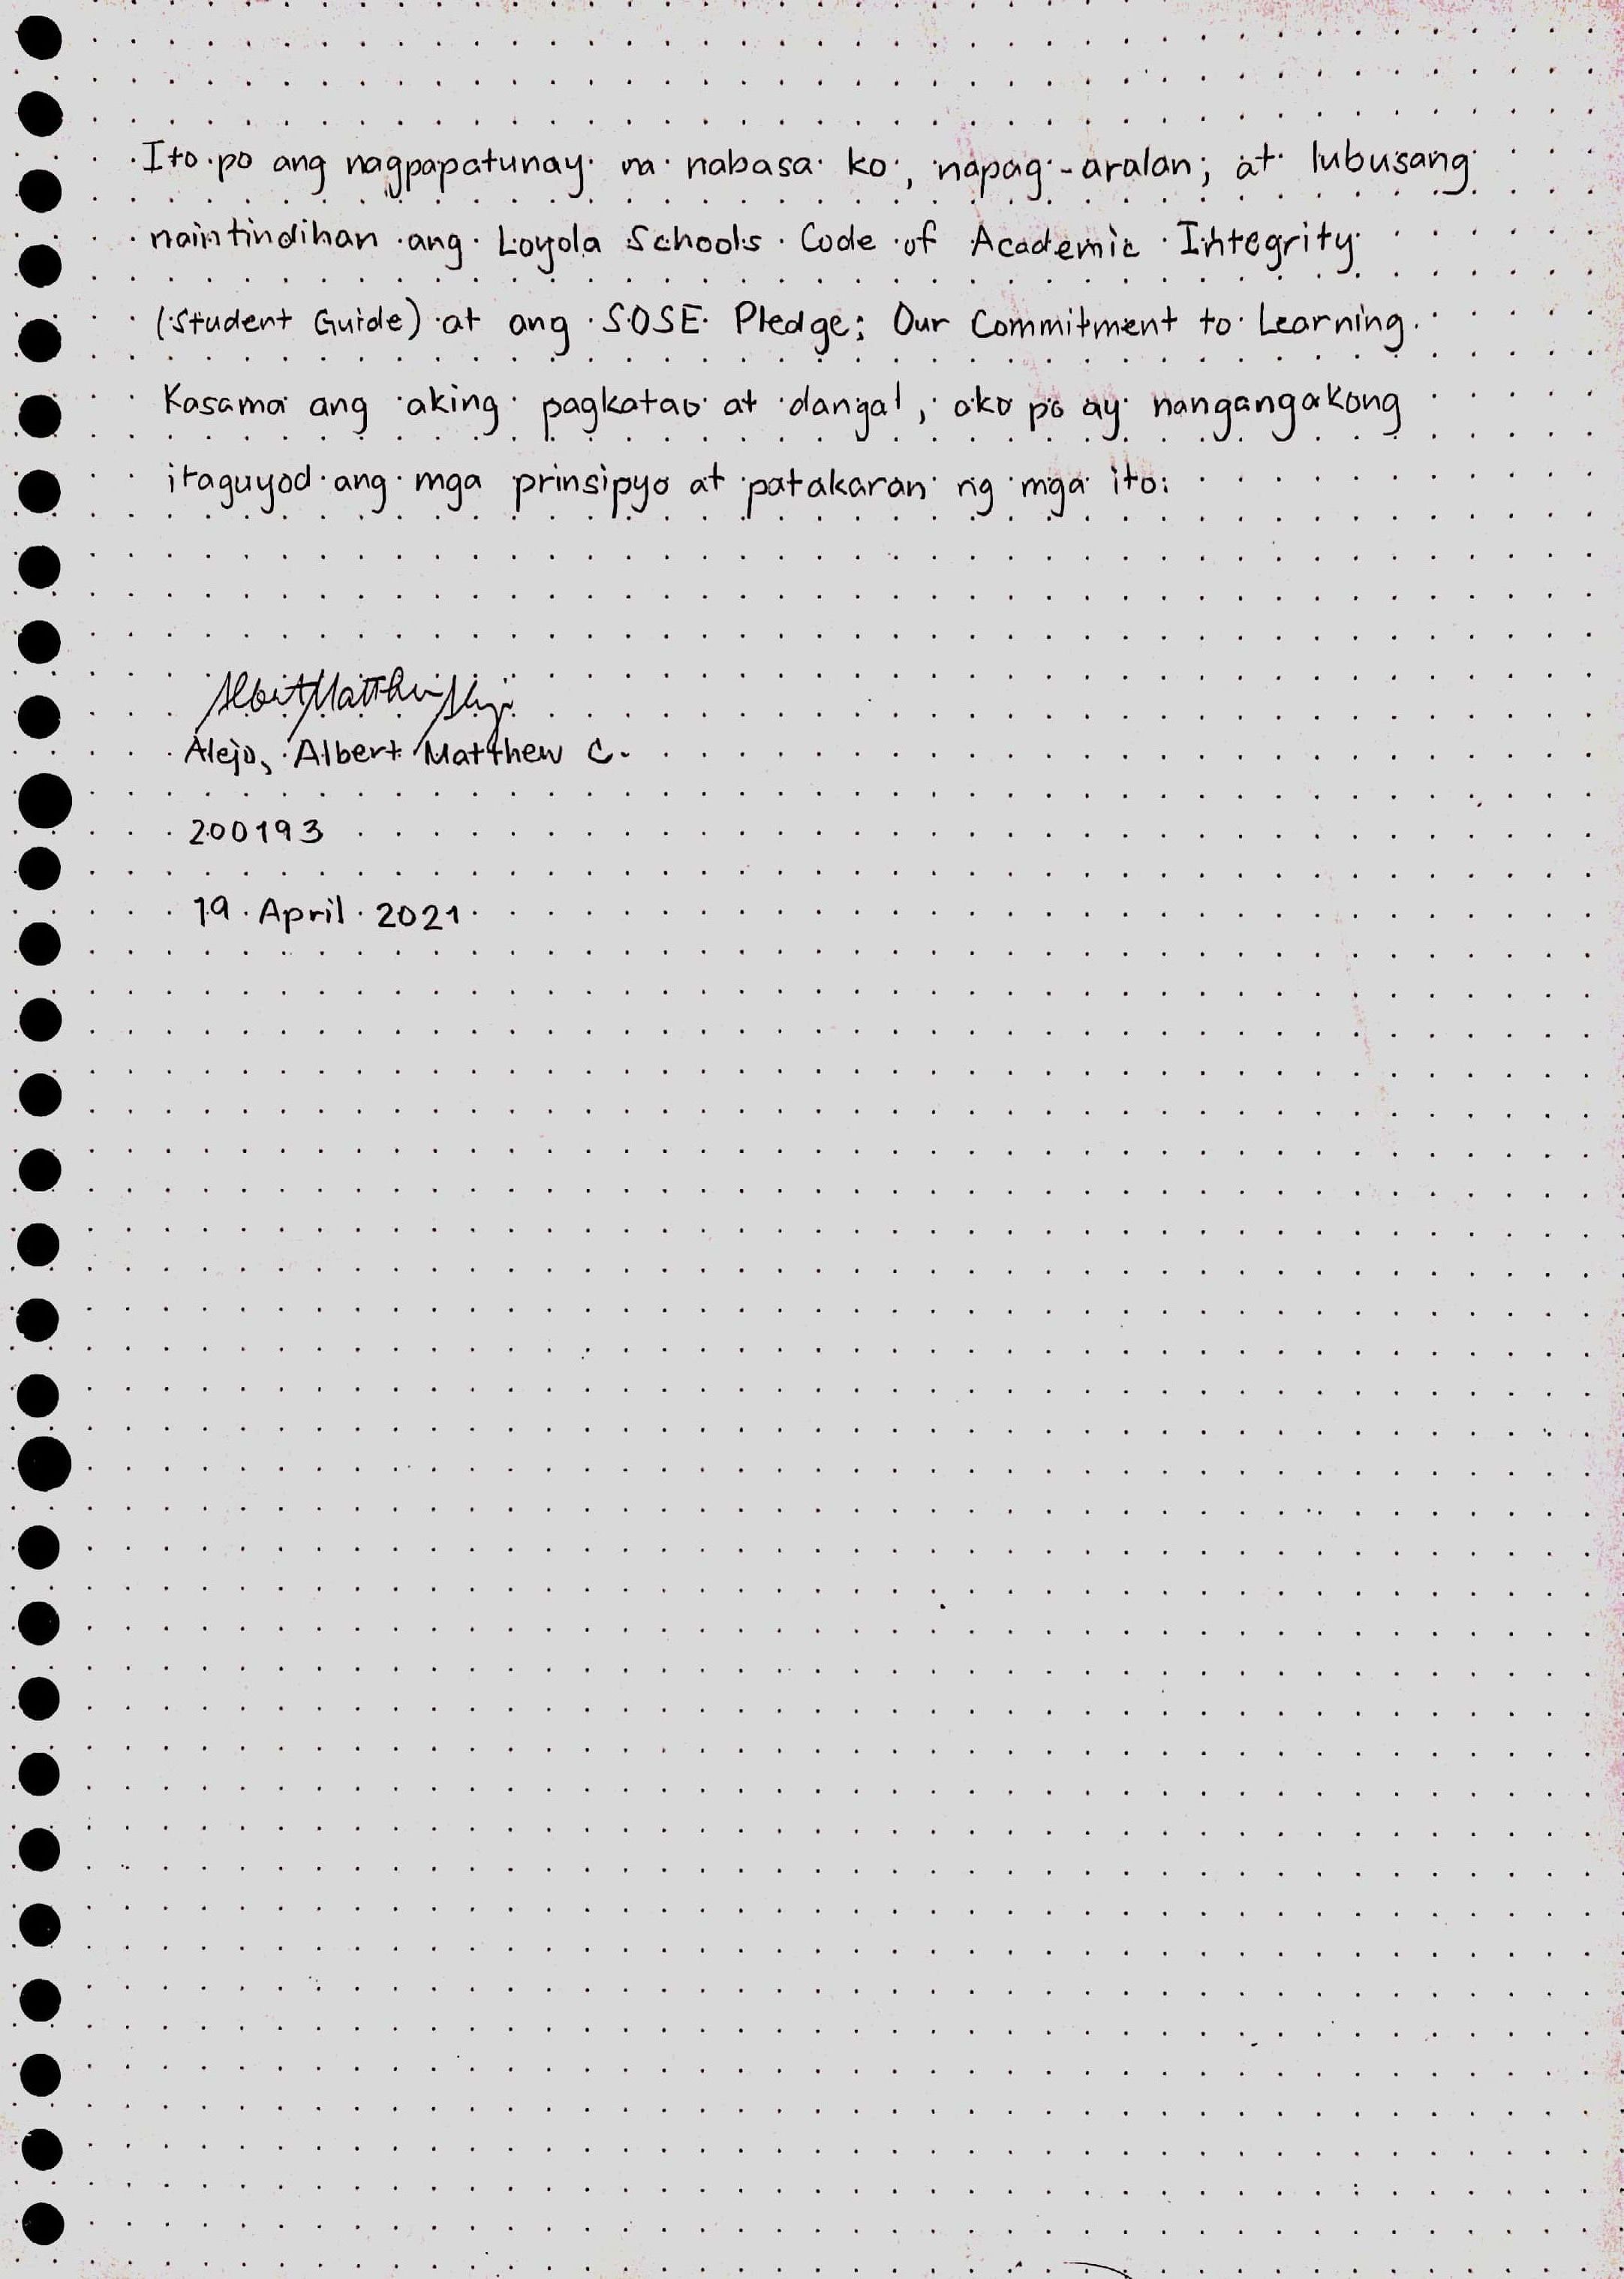 Ito po ang nagpapatunay na nabasa ko, napag-aralan, at lubusang
naintindihan ang Loyola Schools Code of Academic Integrity
(Student Guide) at ang SOSE Pledge: Our Commitment to Learning.
Kasama ang aking pagkatao at dangal, ako po ay nangangakong
itaguyod ang mga prinsipyo at patakaran ng mga ito.
Albert Matthew Alejo
Alejo, Albert Matthew C.
200193
19 April 2021